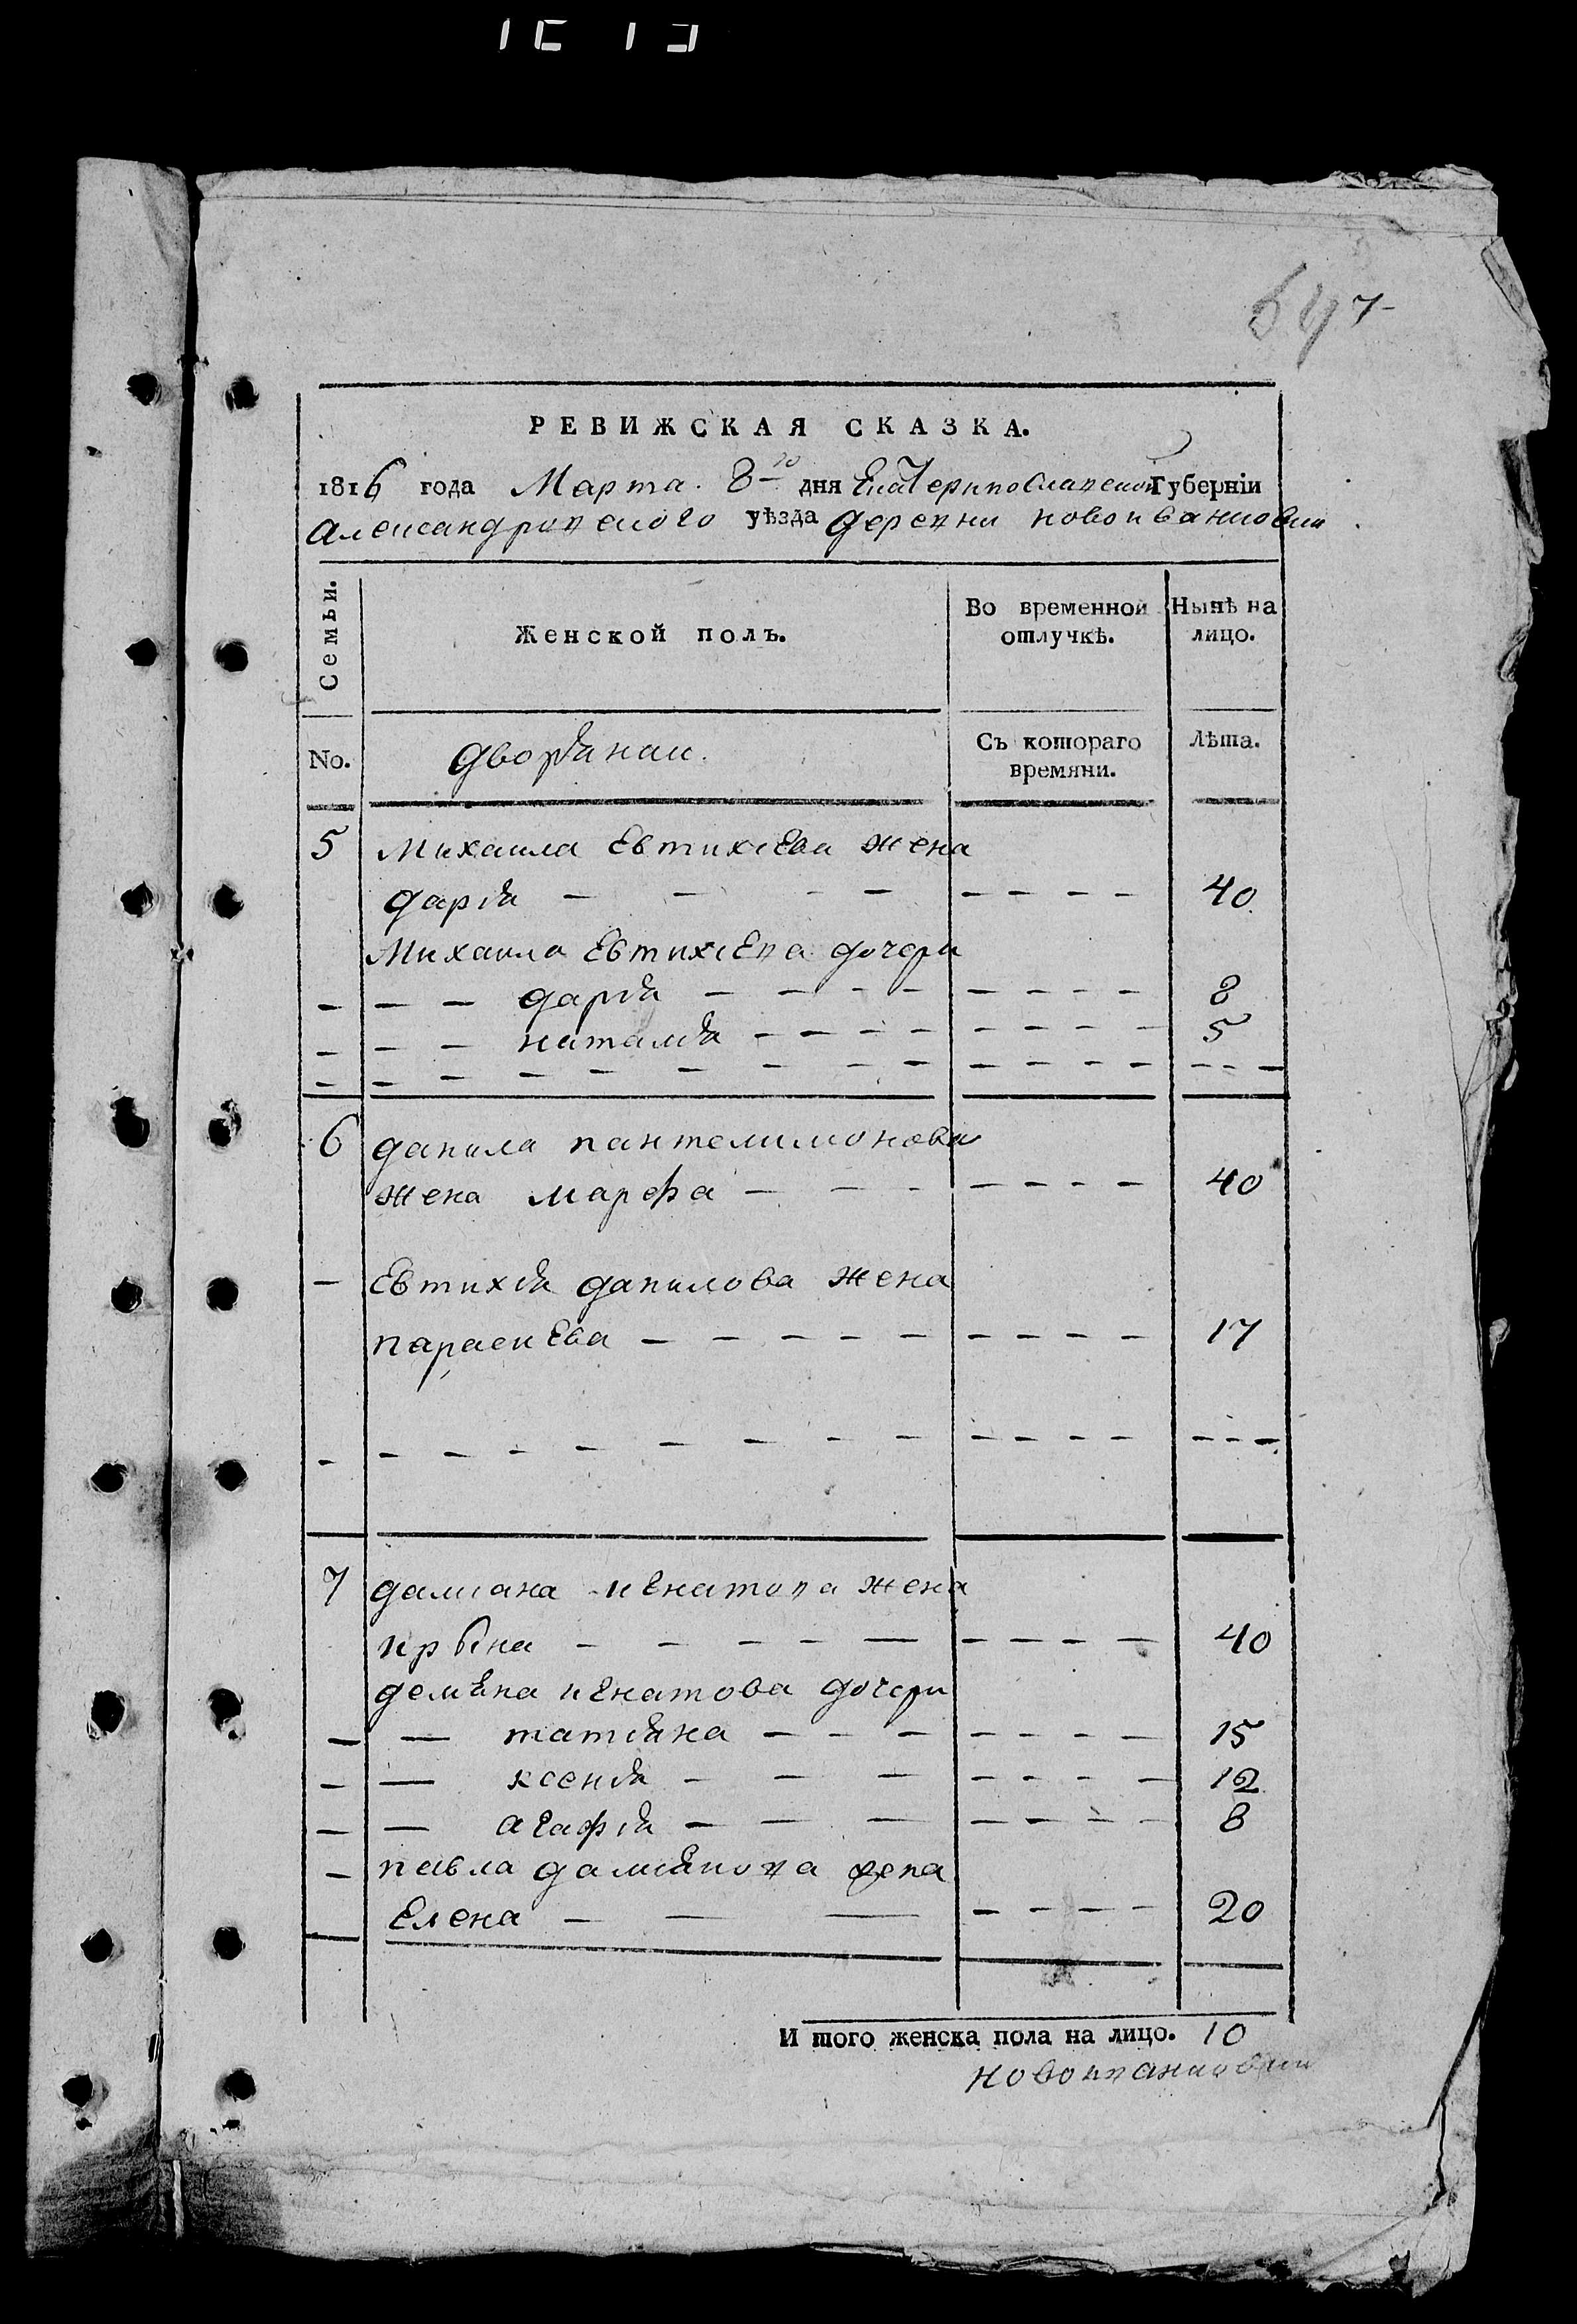 547
РЕВИЖСКАЯ СКАЗКА.
1816 года Марта 8го дня Екатеринославской Губерніи
Александровского уѣзда деревни новоивановки
Семьи. Женской полъ. Во временной отлучкѣ. Нынѣ на лицо.
No. дворяннаи. Съ котораго времяни. Лѣта.
5 Михаила Евтихіева жена
дарія – – – – – – – – 40
Михаила Евтихіева дочери
– – – дарія – – – – – – – – 8
– – – наталія – – – – – – – – 5
6 данила пантелимонова
жена марфа – – – – – – – 40
– Евтихія данилова жена
параскева – – – – – – – – – 17
7 даміана игнатова жена
ирына – – – – – – – – – 40
деміяна игнатова дочери
– – татіяна – – – – – – – 15
– – ксенія – – – – – – – 12
– – агафія – – – – – – – 8
– павла даміянова жена
Елена – – – – – – – 20
И того женска пола на лицо. 10
новоивановки